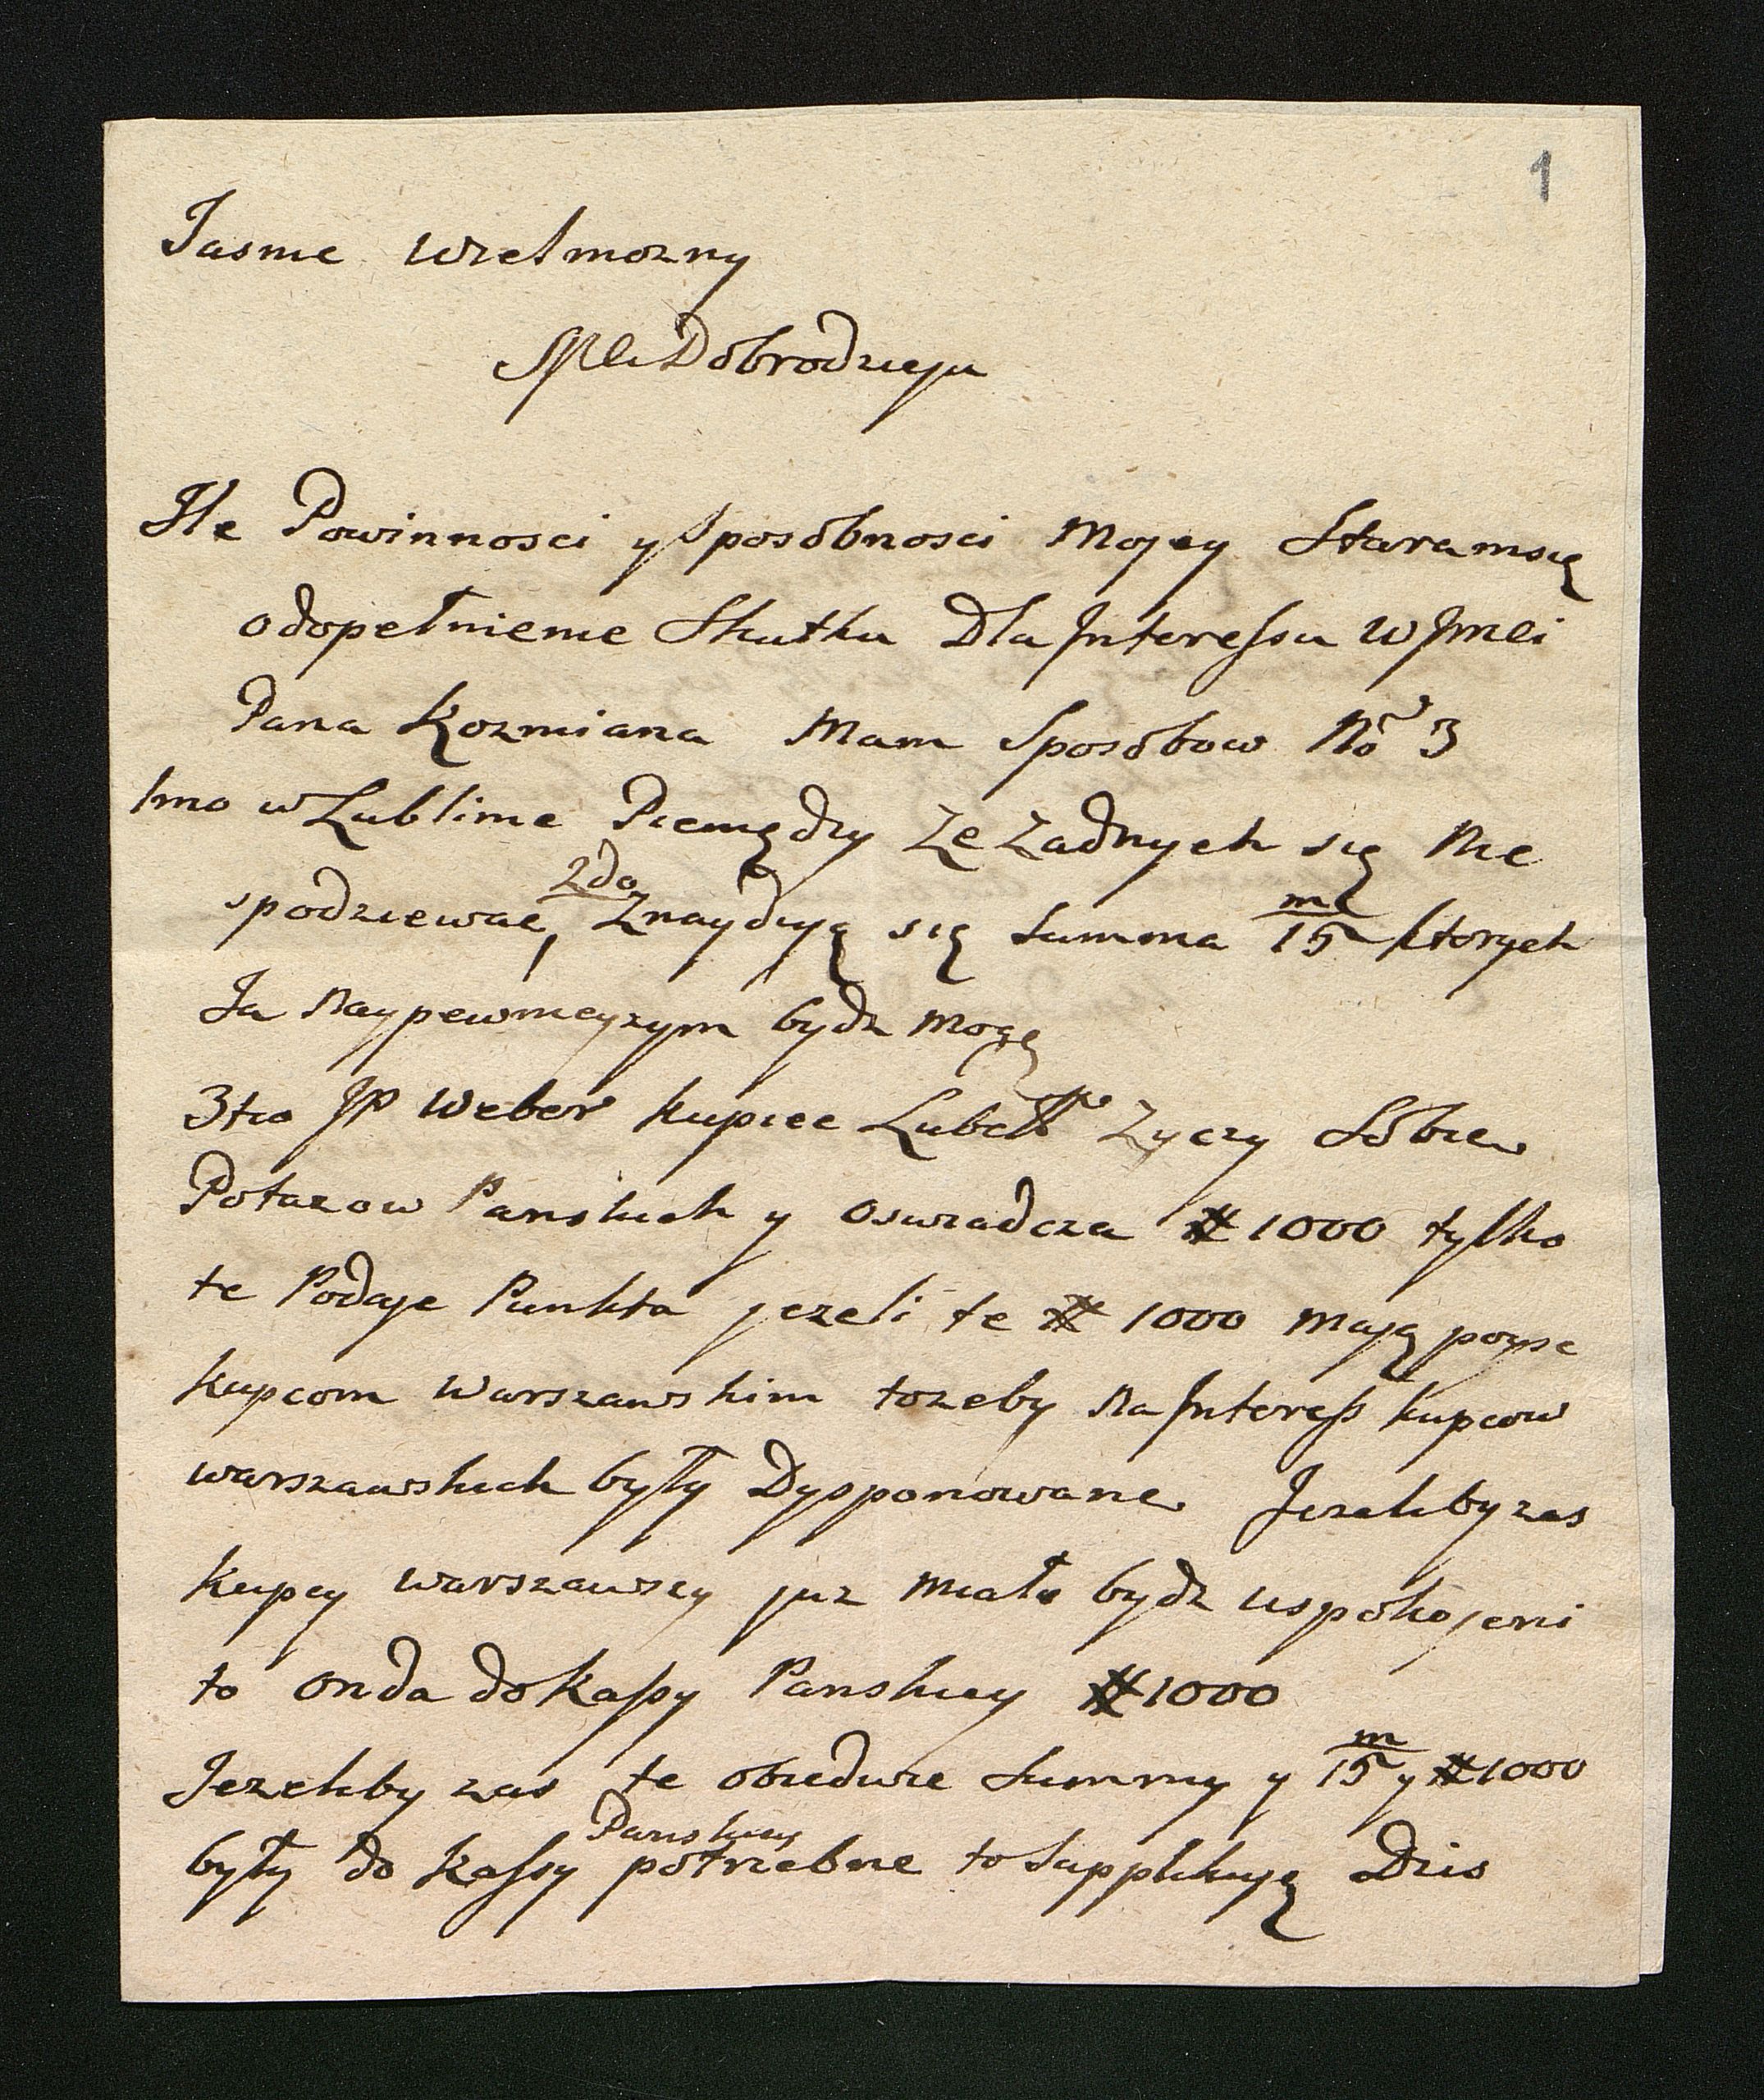 1
Jasnie Wielmozny
Mci Dobrodzieju
Ile Powinnosci y Sposobnosci Mojey Staramsię
odopełnienie Skutku Dla Jnteressu W Jmci
Pana Kozmiana Mam Sposobow No 3
1mo w Lublinie Pieniędzy Ze Zadnych się Nie
spodziewac, 2do Znaydują się Summa m/15 ktorych
Ja Naypewnieyszym bydz Mogę
3tio JP Weber kupiec Lubelski Zyczy Sobie
Potazow Panskich y oswiadcza # 1000 tylko
te Podaje Punkta jezeli te # 1000 mają pojsc
kupcom Warszawskim tozeby Na Jnteress kupcow
warszawskich były Dysponowane Jezeliby zas
kupcy warszawscy juz Mieli bydz uspokojeni
to on da do Kassy Panskiey # 1000
Jezeliby zas te obiedwie Summy y m/15 y # 1000
były do Kassy Panskiey potrzebne to Supplikuję Dzis